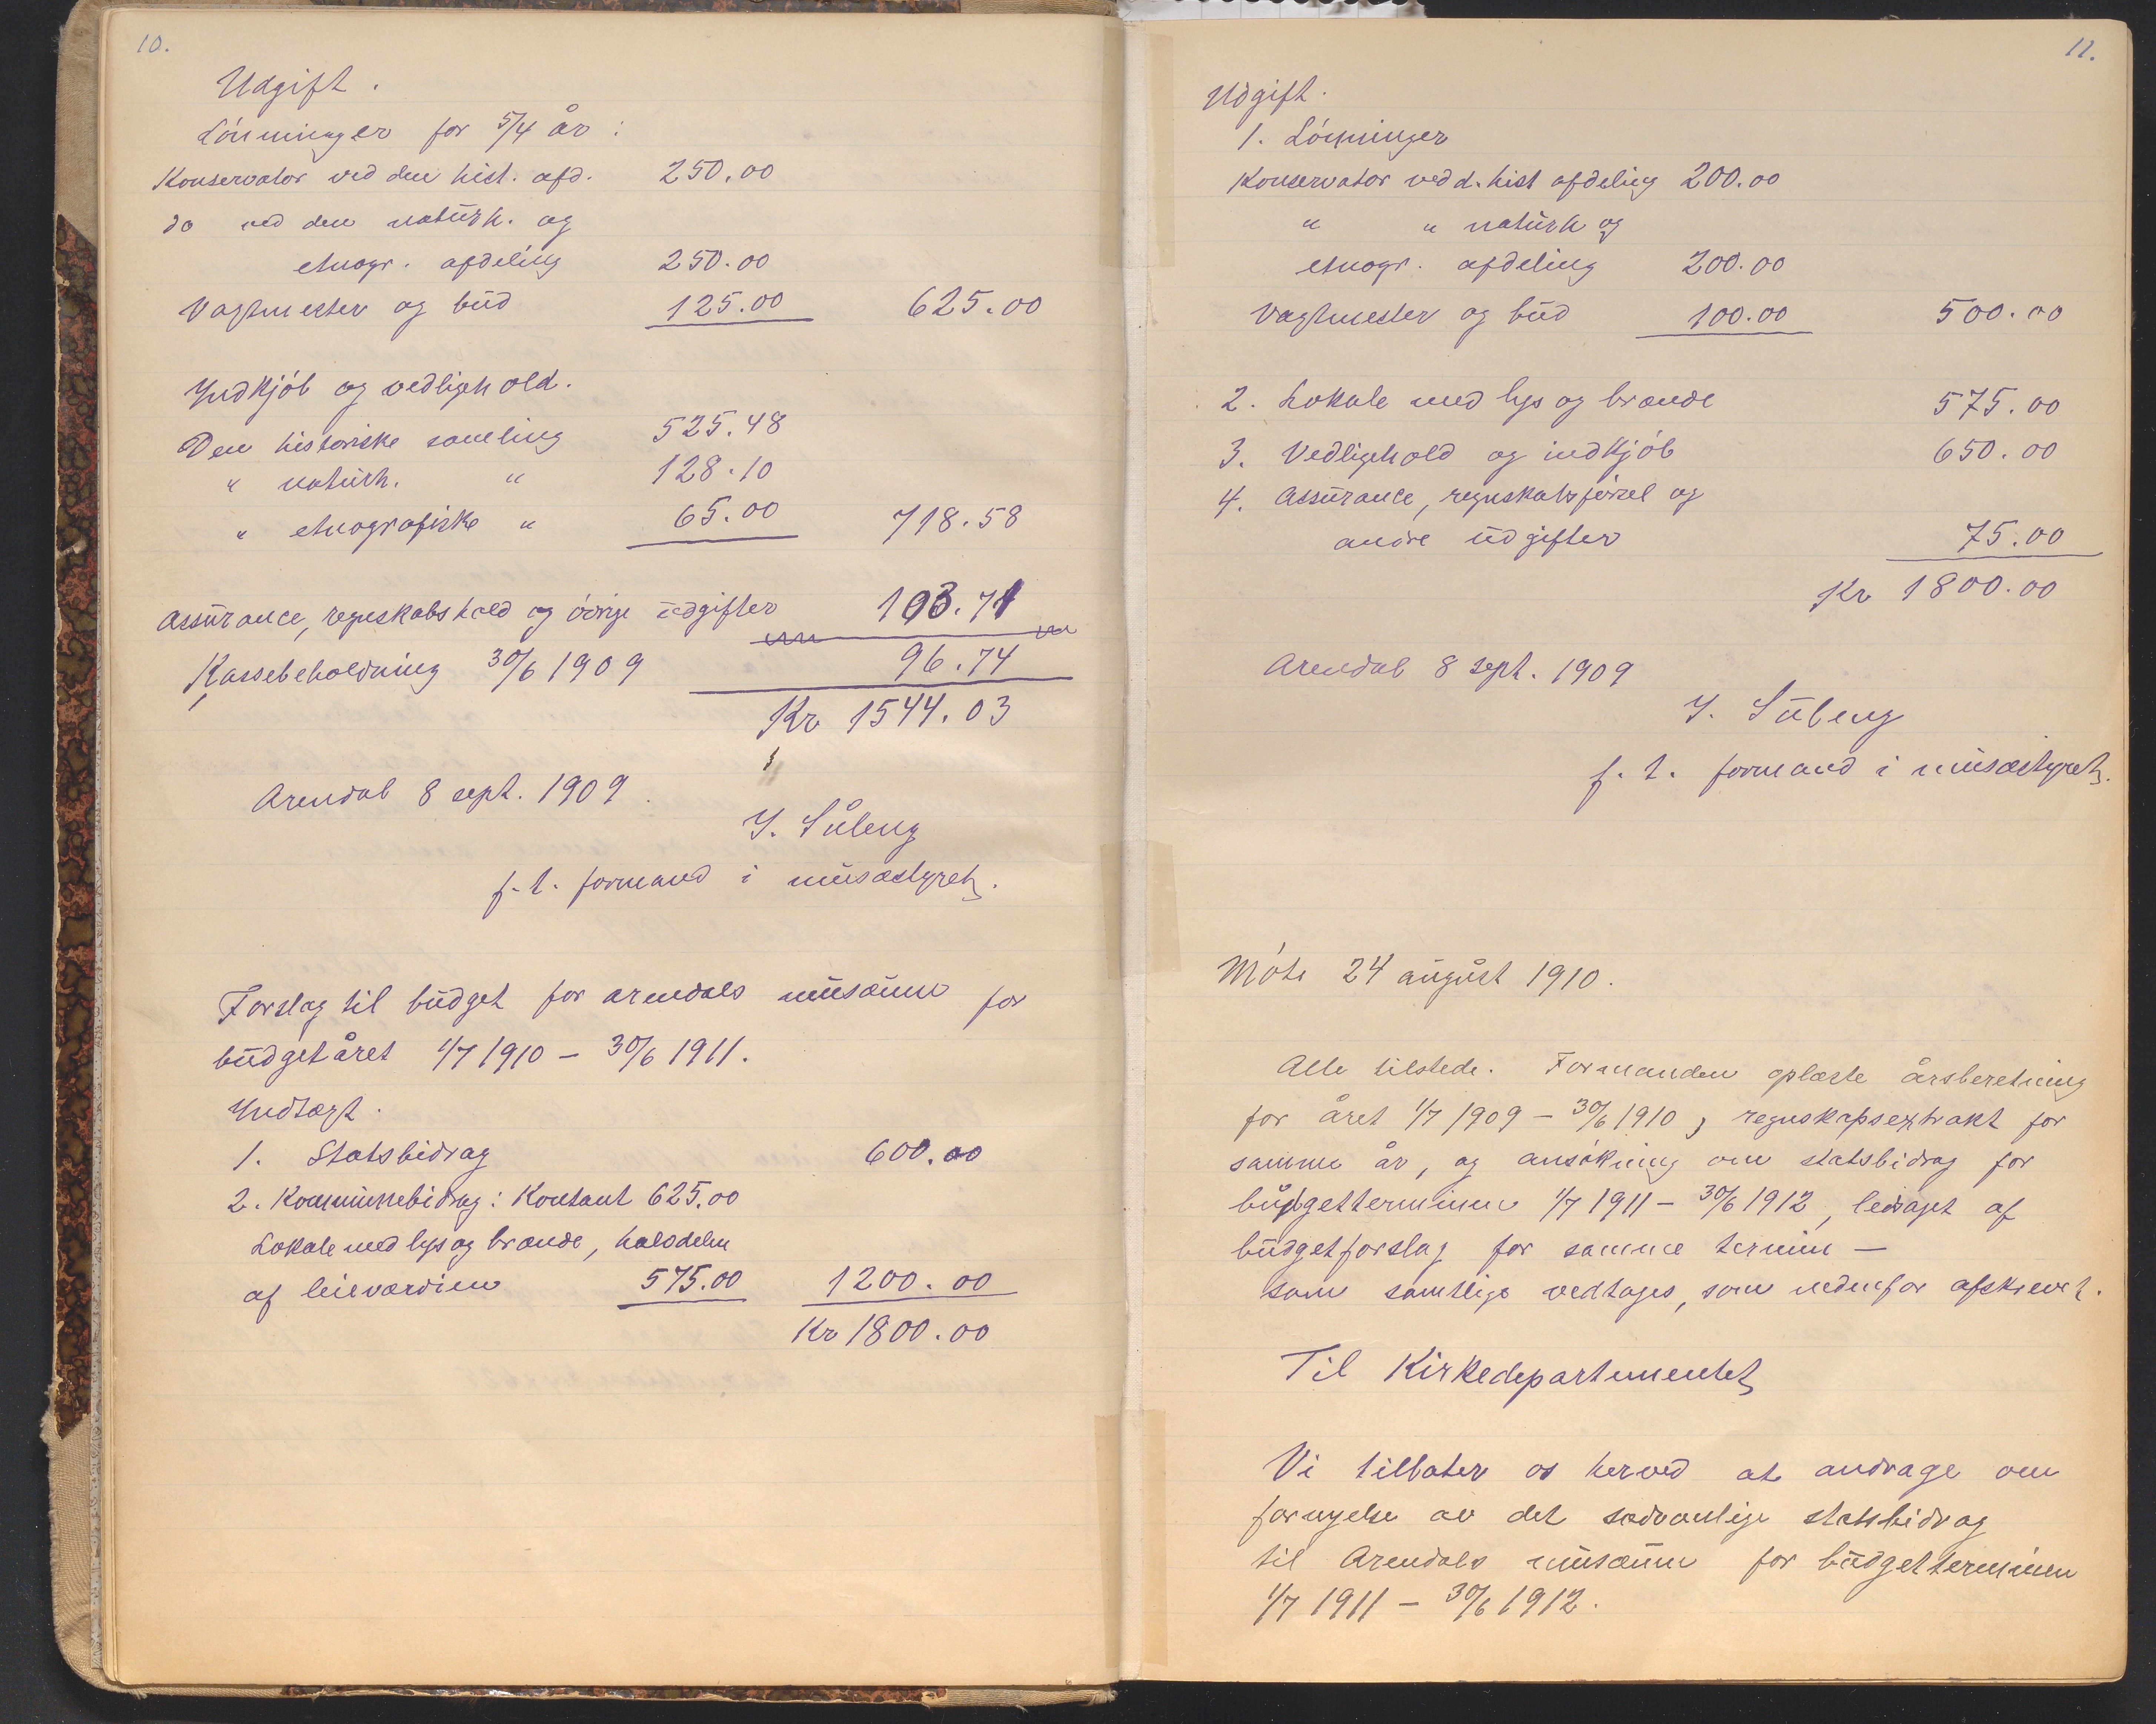 10.
Udgift.
Lönninger for 5/4 år:
Konservator ved den hist. afd. 250.00
do ved den naturh. og
etnogr. afdeling 250.00
Vagtmester og bud 125.00 625.00
Indkjöb og vedligehold.
Den historiske samling 525.48
" naturh. " 128.10
" etnografiske " 65.00 718.58
Assurance, regnskabshold og övrige udgifter 103.71
Kassebeholdning 30/6 1909 96.74
Kr 1544.03
Arendal 8 sept. 1909.
f.t. formand i musæstyret.
Forslag til budget for arendals musæum for
budgetåret 1/7 1910 – 30/6 1911.
Indtægt.
1. Statsbidrag 600.00
2. Kommunebidrag: Kontant 625.00
Lokale med lys og brænde, halvdelen
af leieværdien 575.00 1200.00
Kr 1800.00
11.
Udgift.
1. Lönninger
Konservator ved d. hist afdeling 200.00
" " naturh og
etnogr. afdeling 200.00
Vagtmester og bud 100.00 500.00
2. Lokale med lys og brænde 575.00
3. Vedligehold og indkjöb 650.00
4. Assurance, regnskabsförsel og
andre udgifter 75.00
Kr 1800.00
Arendal 8 sept. 1909
f.t. formand i musæstyret.
Möte 24 august 1910.
Alle tilstede. Formanden oplæste årsberetning
for året 1/7 1909 – 30/6 1910, regnskapsextrakt for
samme år, og ansökning om statsbidrag for
budgetterminen 1/7 1911 – 30/6 1912, ledsaget af
budgetforslag for samme termin –
som samtlige vedtages, som nedenfor afskrevet.
Til Kirkedepartementet
Vi tillater os herved at andrage om
fornyelse av det sedvanlige statsbidrag
til Arendals musæum for budgetterminen
1/7 1911 – 30/6 1912.